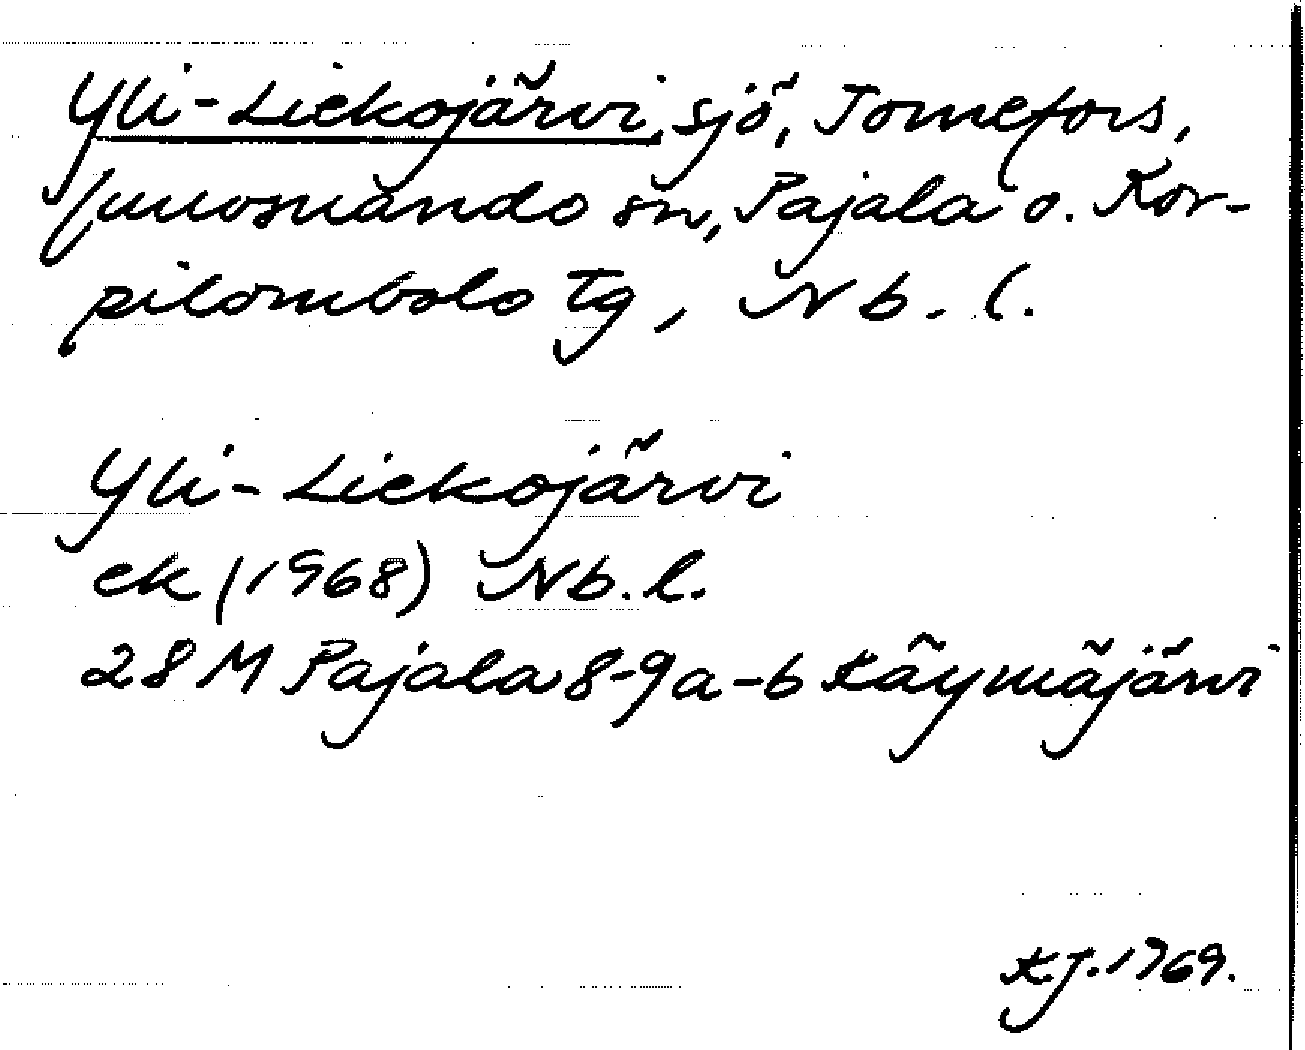 Yli-Liekojärvi, sjö, Tornefors,
Junosuando sn, Pajala o. Kor-
pilombolo tg, Nb. l.
Yli-Liekojärvi
ek (1968) Nb. l.
28 M Pajala 8-9a-b Käymäjärvi
KJ. 1969.